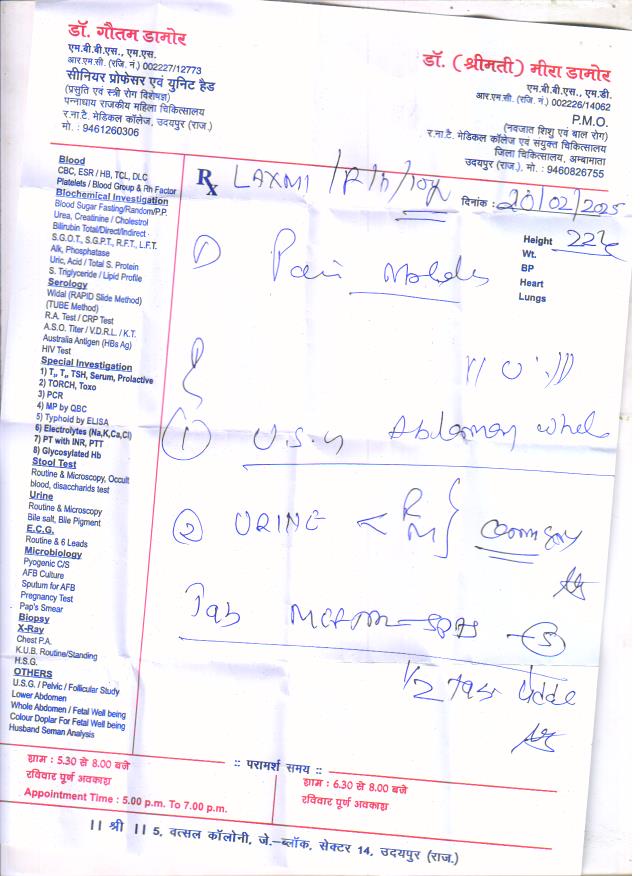 डॉ. गौतम डामोर
एम.बी.बी.एस., एम.एस.
आर.एम.सी. (रजि. नं.) 002227/12773
सीनियर प्रोफेसर एवं युनिट हैड
(प्रसुति एवं स्त्री रोग विशेषज्ञ)
पन्नाधाय राजकीय महिला चिकित्सालय
र.ना.टै. मेडिकल कॉलेज, उदयपुर (राज.)
मो. : 9461260306
डॉ. (श्रीमती) मीरा डामोर
एम.बी.बी.एस., एम.डी.
आर.एम.सी. (रजि. नं.) 002226/14062
P.M.O.
(नवजात शिशु एवं बाल रोग)
र.ना.टै. मेडिकल कॉलेज एवं संयुक्त चिकित्सालय
जिला चिकित्सालय, अम्बामाता
उदयपुर (राज.). मो. : 9460826755
Blood
CBC, ESR / HB, TCL, DLC
Platelets / Blood Group & Rh Factor
Biochemical Investigation
Blood Sugar Fasting/Random/P.P.
Urea, Creatinine / Cholestrol
Bilirubin Total/Direct/Indirect
S.G.O.T., S.G.P.T., R.F.T., L.F.T.
Alk, Phosphatase
Uric, Acid / Total S. Protein
S. Triglyceride / Lipid Profile
Serology
Widal (RAPID Slide Method)
(TUBE Method)
R.A. Test / CRP Test
A.S.O. Titer / V.D.R.L. / K.T.
Australia Antigen (HBs Ag)
HIV Test
Special Investigation
1) T₃, T₄, TSH, Serum, Prolactive
2) TORCH, Toxo
3) PCR
4) MP by QBC
5) Typhoid by ELISA
6) Electrolytes (Na,K,Ca,Cl)
7) PT with INR, PTT
8) Glycosylated Hb
Stool Test
Routine & Microscopy, Occult
blood, disaccharids test
Urine
Routine & Microscopy
Bile salt, Bile Pigment
E.C.G.
Routine & 6 Leads
Microbiology
Pyogenic C/S
AFB Culture
Sputum for AFB
Pregnancy Test
Pap's Smear
Biopsy
X-Ray
Chest P.A.
K.U.B. Routine/Standing
H.S.G.
OTHERS
U.S.G. / Pelvic / Follicular Study
Lower Abdomen
Whole Abdomen / Fetal Well being
Colour Doplar For Fetal Well being
Husband Seman Analysis
Rx LAXMI दिनांक : 20/02/2025
Height
Wt.
BP
Heart
Lungs
① Pain
① U.S.G
② URINE < R M }
Tab
1/2
:: परामर्श समय ::
शाम : 5.30 से 8.00 बजे
रविवार पूर्ण अवकाश
Appointment Time : 5.00 p.m. To 7.00 p.m.
शाम : 6.30 से 8.00 बजे
रविवार पूर्ण अवकाश
|| श्री || 5, वत्सल कॉलोनी, जे.-ब्लॉक, सेक्टर 14, उदयपुर (राज.)